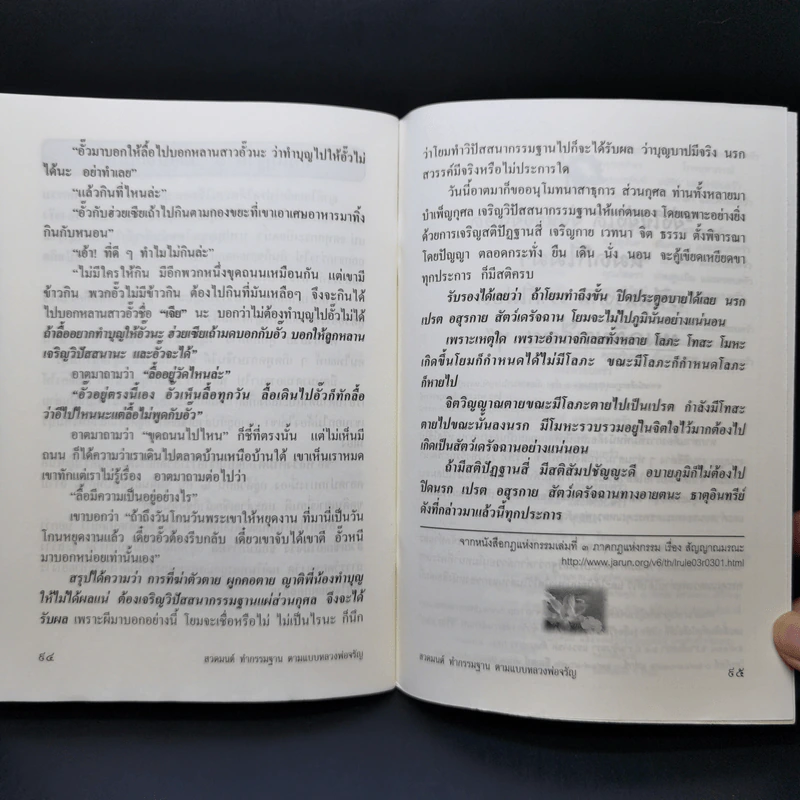 "อั๊วมาบอกให้ลื้อไปบอกหลานสาวอั๊วนะ ว่าทำบุญไปให้อั๊วไม่
ได้นะ อย่าทำเลย"
"แล้วกินที่ไหนล่ะ"
"อั๊วกับฮ่วยเซียเถ้าไปกินตามกองขยะที่เขาเอาเศษอาหารมาทิ้ง
กินกับหนอน"
"เอ้า! ที่ดี ๆ ทำไมไม่กินล่ะ"
"ไม่มีใครให้กิน มีอีกพวกหนึ่งขุดถนนเหมือนกัน แต่เขามี
ข้าวกิน พวกอั๊วไม่มีข้าวกิน ต้องไปกินที่มันเหลือๆ จึงจะกินได้
ไปบอกหลานสาวอั๊วชื่อ "เจีย" นะ บอกว่าไม่ต้องทำบุญไปอั๊วไม่ได้
ถ้าลื้ออยากทำบุญให้อั๊วนะ ฮ่วยเซียเถ้ามดบอกกับอั๊ว บอกให้ลูกหลาน
เจริญวิปัสสนานะ และอั๊วจะได้"
อาตมาถามว่า "ลื้ออยู่วัดไหนล่ะ"
"อั๊วอยู่ตรงนี้เอง อั๊วเห็นลื้อทุกวัน ลื้อเดินไปอั๊วก็ทักลื้อ
ว่าอีไปไหนนะแต่ลื้อไม่พูดกับอั๊ว"
อาตมาถามว่า "ขุดถนนไปไหน" ก็ชี้ที่ตรงนั้น แต่ไม่เห็นมี
ถนน ก็ได้ความว่าเราเดินไปตลาดบ้านเหนือบ้านใต้ เขาเห็นเราหมด
เขาทักแต่เราไม่รู้เรื่อง อาตมาถามต่อไปว่า
"ลื้อมีความเป็นอยู่อย่างไร"
เขาบอกว่า "ถ้าถึงวันโกนวันพระเขาให้หยุดงาน ที่มานี่เป็นวัน
โกนหยุดงานแล้ว เดี๋ยวอั๊วต้องรีบกลับ เดี๋ยวเขาจับได้เขาตี อั๊วหนี
มาบอกหน่อยเท่านั้นเอง"
สรุปได้ความว่า การที่ฆ่าตัวตาย ผูกคอตาย ญาติพี่น้องทำบุญ
ให้ไม่ได้ผลแน่ ต้องเจริญวิปัสสนากรรมฐานแผ่ส่วนกุศล จึงจะได้
รับผล เพราะผีมาบอกอย่างนี้ โยมจะเชื่อหรือไม่ ไม่เป็นไรนะ ก็นึก
๙๔ สวดมนต์ ทำกรรมฐาน ตามแบบหลวงพ่อจรัญ
ว่าโยมทำวิปัสสนากรรมฐานไปก็จะได้รับผล ว่าบุญบาปมีจริง นรก
สวรรค์มีจริงหรือไม่ประการใด
วันนี้อาตมาก็ขออนุโมทนาสาธุการ ส่วนกุศล ท่านทั้งหลายมา
บำเพ็ญกุศล เจริญวิปัสสนากรรมฐานให้แก่ตนเอง โดยเฉพาะอย่างยิ่ง
ด้วยการเจริญสติปัฏฐานสี่ เจริญกาย เวทนา จิต ธรรม ตั้งพิจารณา
โดยปัญญา ตลอดกระทั่ง ยืน เดิน นั่ง นอน จะคู้เขียดเหยียดขา
ทุกประการ ก็มีสติครบ
รับรองได้เลยว่า ถ้าโยมทำถึงขั้น ปิดประตูอบายได้เลย นรก
เปรต อสุรกาย สัตว์เดรัจฉาน โยมจะไม่ไปภูมินั้นอย่างแน่นอน
เพราะเหตุใด เพราะอำนาจกิเลสทั้งหลาย โลภะ โทสะ โมหะ
เกิดขึ้นโยมก็กำหนดได้ไม่มีโลภะ ขณะมีโลภะก็กำหนดโลภะ
ก็หายไป
จิตวิญญาณตายขณะมีโลภะตายไปเป็นเปรต กำลังมีโทสะ
ตายไปขณะนั้นลงนรก มีโมหะรวบรวมอยู่ในจิตใจไว้มากต้องไป
เกิดเป็นสัตว์เดรัจฉานอย่างแน่นอน
ถ้ามีสติปัฏฐานสี่ มีสติสัมปชัญญะดี อบายภูมิก็ไม่ต้องไป
ปิดนรก เปรต อสุรกาย สัตว์เดรัจฉานทางอายตนะ ธาตุอินทรีย์
ดังที่กล่าวมาแล้วนี้ทุกประการ
จากหนังสือกฎแห่งกรรมเล่มที่ ๓ ภาคกฎแห่งกรรม เรื่อง สัญญาณมรณะ
http://www.jarun.org/v6/th/lrule03r0301.html
สวดมนต์ ทำกรรมฐาน ตามแบบหลวงพ่อจรัญ ๙๕